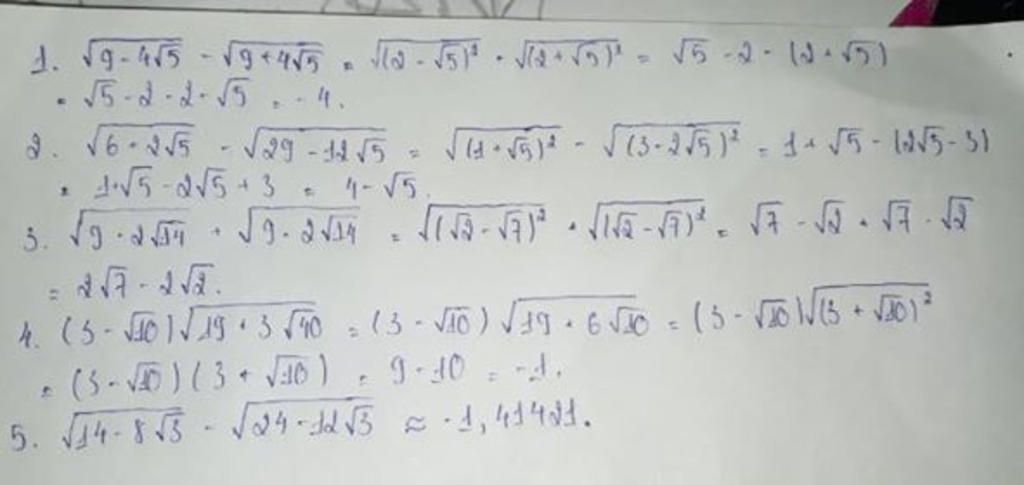 1. √(9 - 4√5) - √(9 + 4√5) = √((2 - √5)²) - √((2 + √5)²) = √5 - 2 - (2 + √5)
= √5 - 2 - 2 - √5 = - 4.
2. √(6 + 2√5) - √(29 - 12√5) = √((1 + √5)²) - √((3 - 2√5)²) = 1 + √5 - (2√5 - 3)
= 1 + √5 - 2√5 + 3 = 4 - √5.
3. √(9 - 2√14) + √(9 - 2√14) = √((√2 - √7)²) + √((√2 - √7)²) = √7 - √2 + √7 - √2
= 2√7 - 2√2.
4. (3 - √10)√(19 + 3√40) = (3 - √10)√(19 + 6√10) = (3 - √10)√((3 + √10)²)
= (3 - √10)(3 + √10) = 9 - 10 = -1.
5. √(14 - 8√3) - √(24 - 12√3) ≈ -1,41421.